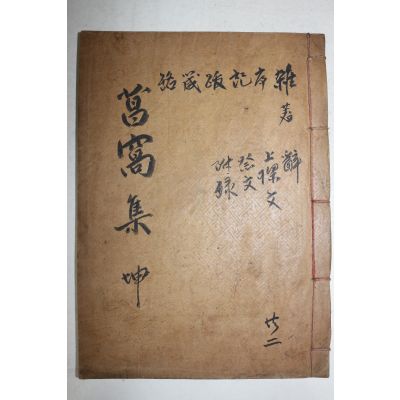 雜著
序記跋箴銘
辭
上樑文
祭文
附錄
共二
菖窩集 坤